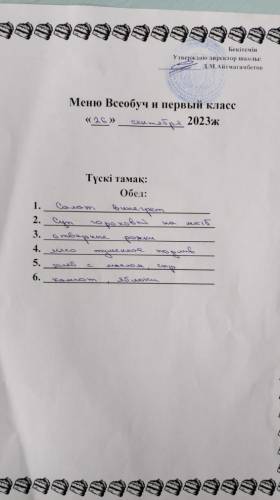 Бекітемін
Утверждаю директор школы:
Д.М.Айтмагамбетов
Меню Всеобуч и первый класс
«26» сентября 2023ж
Түскі тамақ:
Обед:
1. Салат винегрет
2. Суп гороховый на м/сб
3. отварные рожки
4. мясо тушеное подлив
5. хлеб с маслом, сыр
6. компот, яблоки